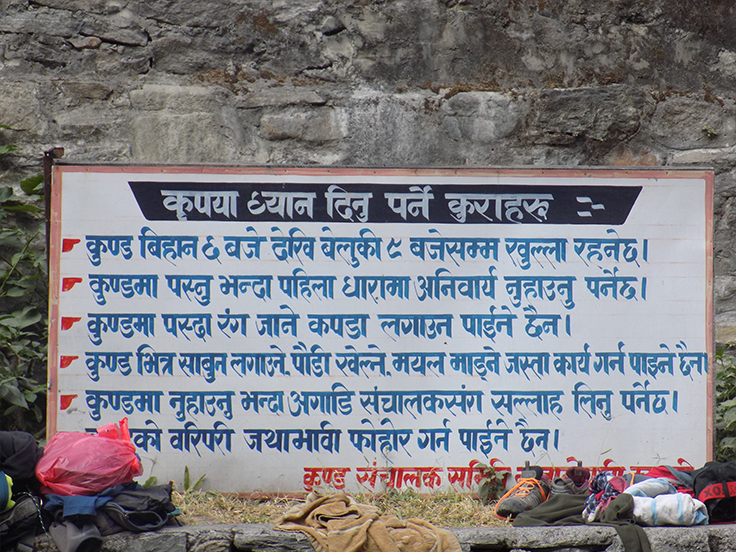 कृपया ध्यान दिनु पर्ने कुराहरु :-
कुण्ड बिहान ६ बजे देखि बेलुकी ९ बजेसम्म खुल्ला रहनेछ।
कुण्डमा पस्नु भन्दा पहिला धारामा अनिवार्य नुहाउनु पर्नेछ।
कुण्डमा पस्दा रंग जाने कपडा लगाउन पाईने छैन।
कुण्ड भित्र साबुन लगाउने, पौडी खेल्ने, मयल माड्ने जस्ता कार्य गर्न पाइने छैन।
कुण्डमा नुहाउनु भन्दा अगाडि संचालकसंग सल्लाह लिनु पर्नेछ।
वरिपरी जथाभावी फोहोर गर्न पाईने छैन।
कुण्ड संचालक समिति